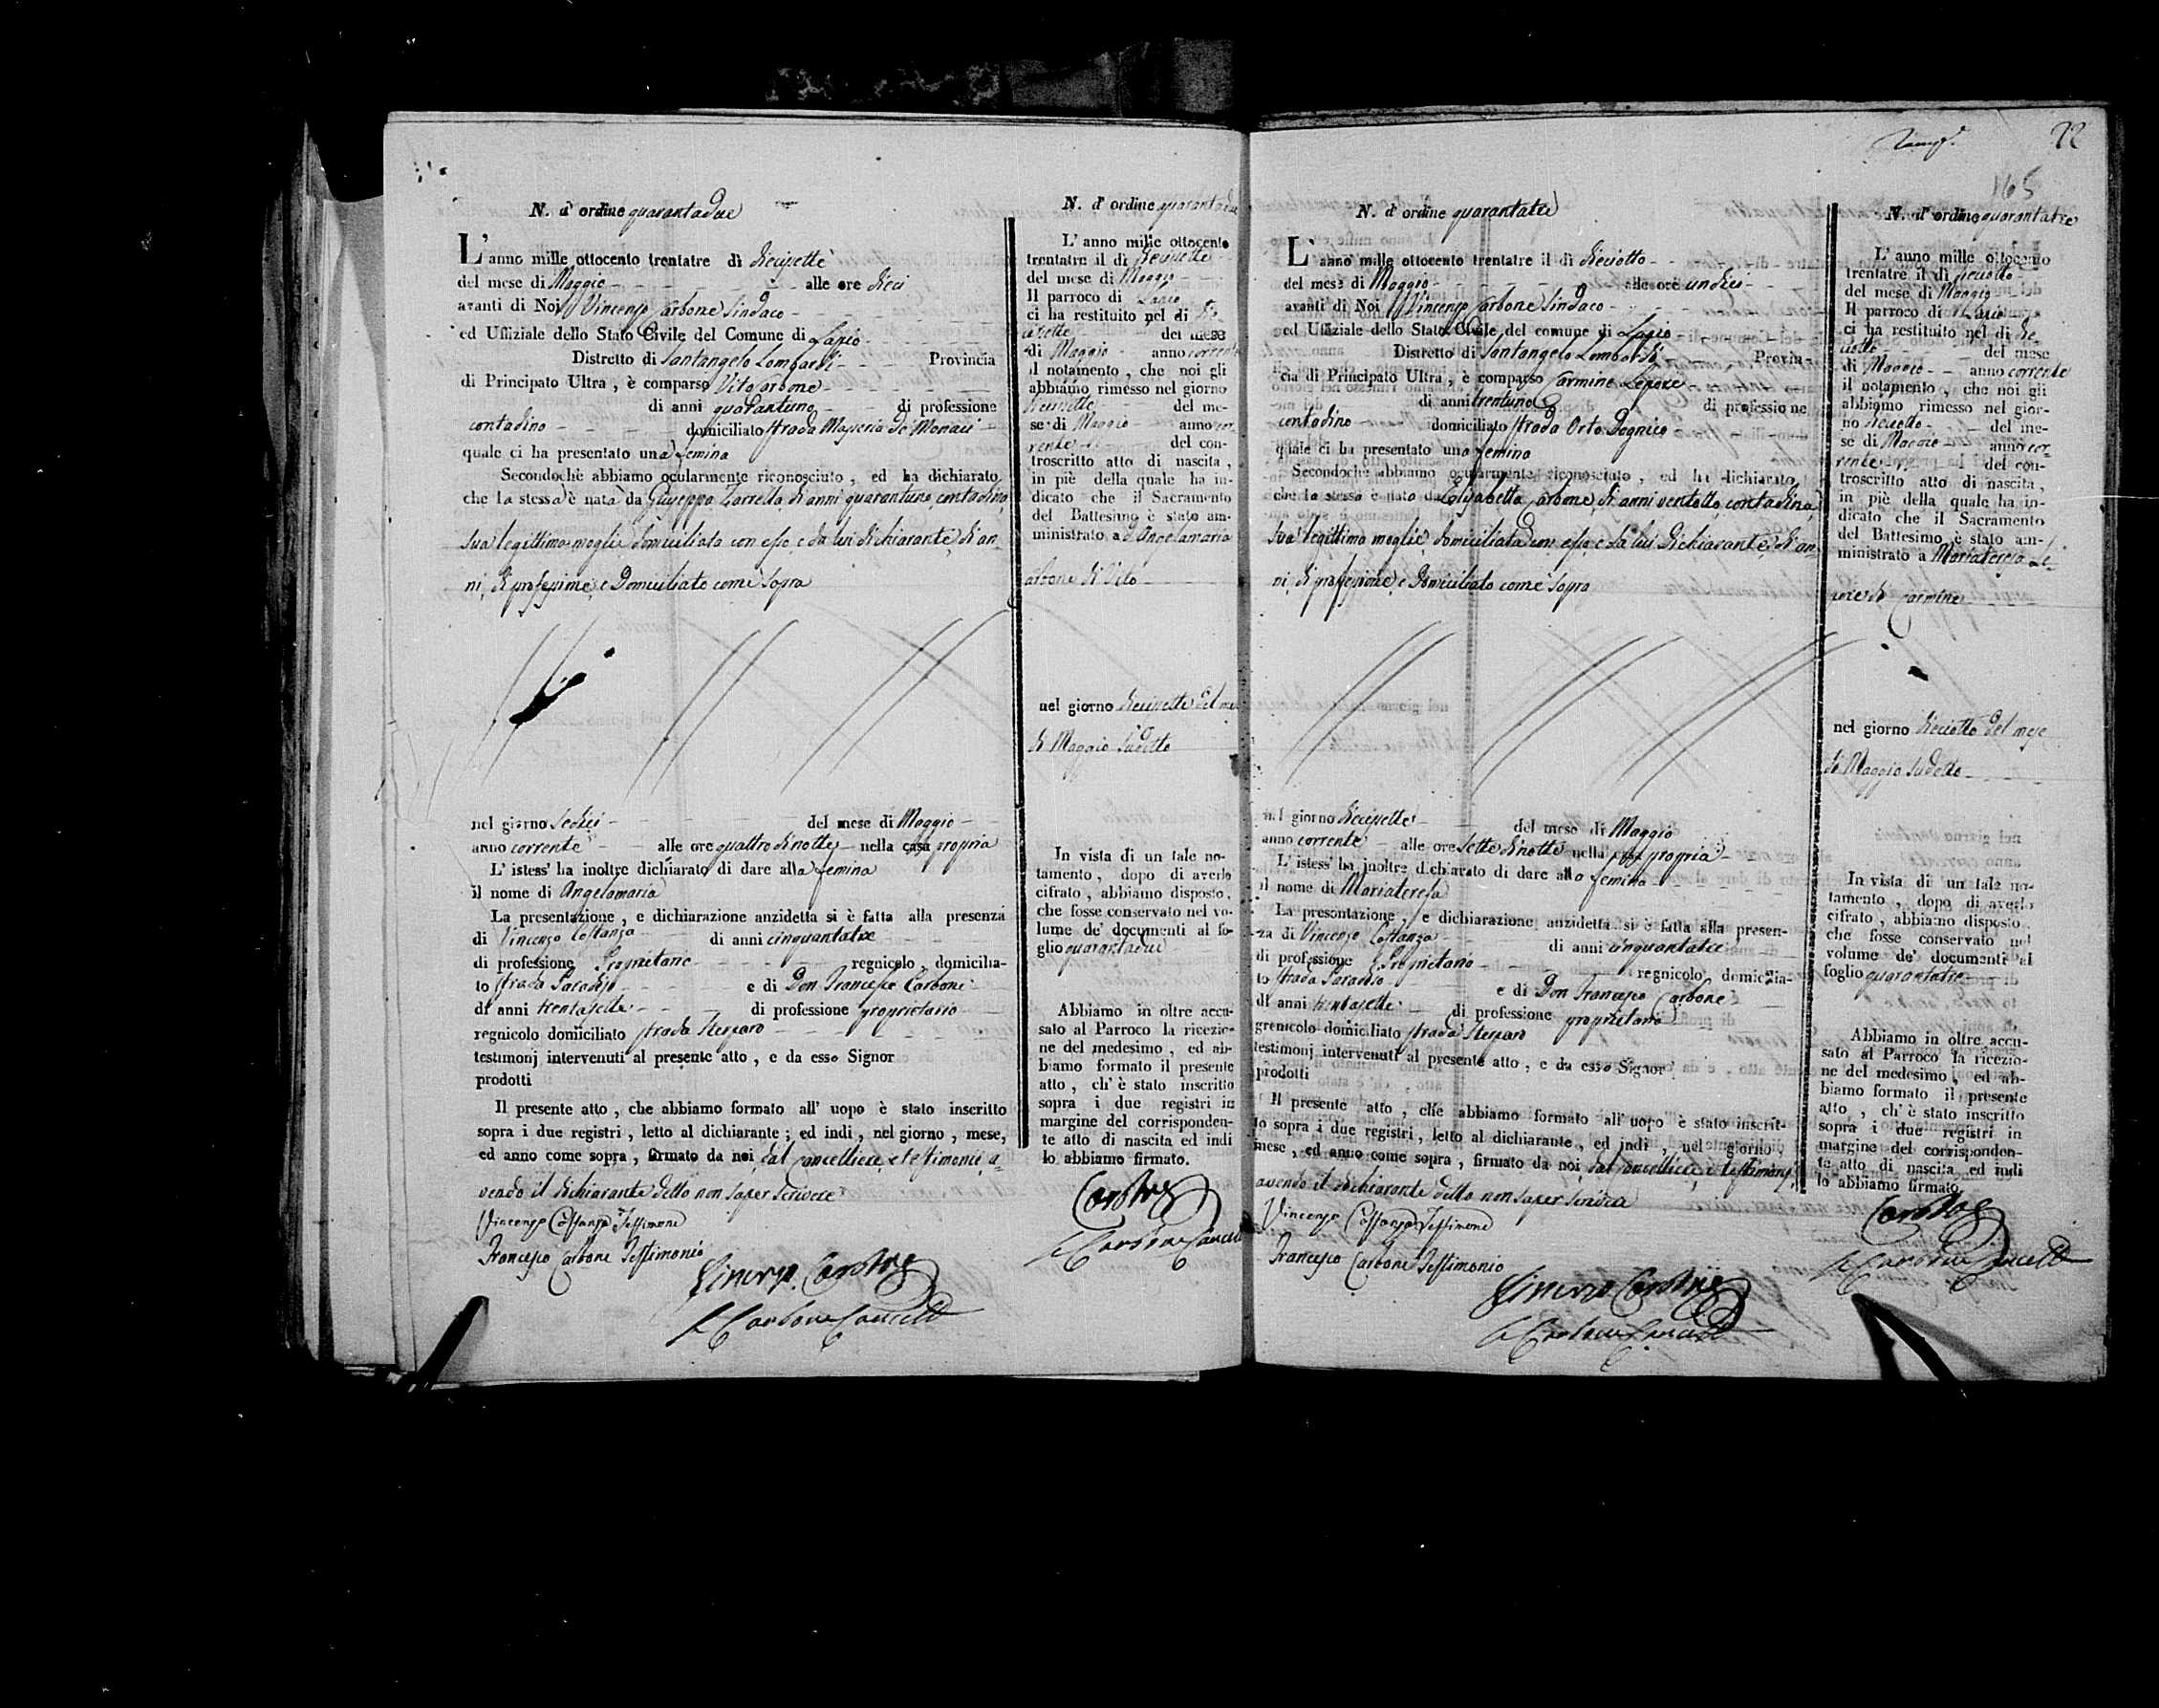 N. d' ordine quarantadue
L' anno mille ottocento trentatre dì diecisette
del mese di Maggio alle ore dieci
avanti di Noi Vincenzo Carbone Sindaco
ed Uffiziale dello Stato Civile del Comune di Lazio
Distretto di Santangelo Lombardi Provincia
di Principato Ultra , è comparso Vito Carbone
di anni quarantuno di professione
contadino domiciliato strada Masseria de' Monaci
quale ci ha presentato una femina
Secondochè abbiamo ocularmente riconosciuto , ed ha dichiarato
che la stessa è nata da Giuseppa Zarrella di anni quarantuno, contadina,
sua legittima moglie domiciliata con esso e da lui dichiarante, di an-
ni, di professione, e Domiciliato come sopra
nel giorno sedici del mese di Maggio
anno corrente alle ore quattro di notte nella casa propria
L' istess' ha inoltre dichiarato di dare alla femina
il nome di Angelamaria
La presentazione , e dichiarazione anzidetta si è fatta alla presenza
di Vincenzo Costanza di anni cinquantatre
di professione Proprietario regnicolo , domicilia-
to strada Paradiso e di Don Francesco Carbone
di anni trentasette di professione proprietario
regnicolo domiciliato strada
testimonj intervenuti al presente atto , e da esso Signor
prodotti
Il presente atto , che abbiamo formato all' uopo è stato inscritto
sopra i due registri , letto al dichiarante ; ed indi , nel giorno , mese,
ed anno come sopra , firmato da noi, dal cancelliere, e testimonj, a-
vendo il dichiarante detto non saper scrivere
Vincenzo Costanza Testimone
Francesco Carbone Testimonio
Vincenzo Carbone
Carbone Cancell
N. d' ordine quarantadue
L' anno mille ottocento
trentatre il dì diecisette
del mese di Maggio
Il parroco di Lazio
ci ha restituito nel dì die-
cisette del mese
di Maggio anno corrente
il notamento , che noi gli
abbiamo rimesso nel giorno
diecisette del me-
se di Maggio anno cor-
rente del con-
troscritto atto di nascita ,
in piè della quale ha in-
dicato che il Sacramento
del Battesimo è stato am-
ministrato a d Angelamaria
Carbone di Vito
nel giorno diecisette del me
di Maggio sudetto
In vista di un tale no-
tamento , dopo di averlo
cifrato , abbiamo disposto ,
che fosse conservato nel vo-
lume de' documenti al fo-
glio quarantadue
Abbiamo in oltre accu-
sato al Parroco la ricezio-
ne del medesimo , ed ab-
biamo formato il presente
atto , ch' è stato inscritto
sopra i due registri in
margine del corrisponden-
te atto di nascita ed indi
lo abbiamo firmato.
Carbone
Carbone Cancell
22
165
N. d' ordine quarantatre
L' anno mille ottocento trentatre il dì dieciotto
del mese di Maggio alle ore undici
avanti di Noi Vincenzo Carbone Sindaco
ed Uffiziale dello Stato Civile del comune di Lazio
Distretto di Santangelo Lombardi Provin-
cia di Principato Ultra , è comparso Carmine Lepore
di anni trentuno di professione
contadino domiciliato strada Orto Dognico
quale ci ha presentato una femina
Secondochè abbiamo ocularmente riconosciuto , ed ha dichiarato
che la stessa è nata da Elisabetta Carbone, di anni ventotto, contadina,
sua legittima moglie, domiciliata con esso e da lui dichiarante, di an-
ni, di professione, e Domiciliato come sopra
nel giorno diecisette del mese di Maggio
anno corrente alle ore sette di notte nella casa propria
L' istess' ha inoltre dichiarato di dare alla femina
il nome di Mariateresa
La presentazione , e dichiarazione anzidetta si è fatta alla presen-
za di Vincenzo Costanza di anni cinquantatre
di professione Proprietario regnicolo , domicilia-
to strada Paradiso e di Don Francesco Carbone
di anni trentasette di professione proprietario
gregnicolo domiciliato strada
testimonj intervenuti al presente atto , e da esso Signor
prodotti
Il presente atto , che abbiamo formato all' uopo è stato inscrit-
to sopra i due registri , letto al dichiarante , ed indi , nel giorno ,
mese , ed anno come sopra , firmato da noi, dal cancelliere, e testimonj,
avendo il dichiarante detto non saper scrivere
Vincenzo Costanza Testimone
Francesco Carbone Testimonio
Vincenzo Carbone
Carbone Cancell
N. d' ordine quarantatre
L' anno mille ottocento
trentatre il dì dieciotto
del mese di Maggio
Il parroco di Lazio
ci ha restituito nel dì die-
ciotto del mese
di Maggio anno corrente
il notamento , che noi gli
abbiamo rimesso nel gior-
no dieciotto del me-
se di Maggio anno cor-
rente del con-
troscritto atto di nascita ,
in piè della quale ha in-
dicato che il Sacramento
del Battesimo è stato am-
ministrato a Mariateresa Le-
pore di Carmine
nel giorno dieciotto del mese
di Maggio sudetto
In vista di un tale no-
tamento , dopo di averlo
cifrato , abbiamo disposto ,
che fosse conservato nel
volume de' documenti al
foglio quarantatre
Abbiamo in oltre accu-
sato al Parroco la ricezio-
ne del medesimo , ed ab-
biamo formato il presente
atto , ch' è stato inscritto
sopra i due registri in
margine del corrisponden-
te atto di nascita ed indi
lo abbiamo firmato
Carbone
Carbone Cancell